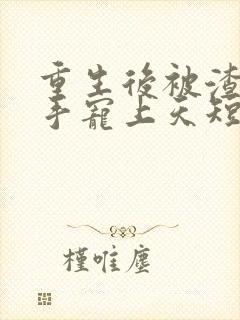 重生後被渣
手寵上天短
槿唯塵